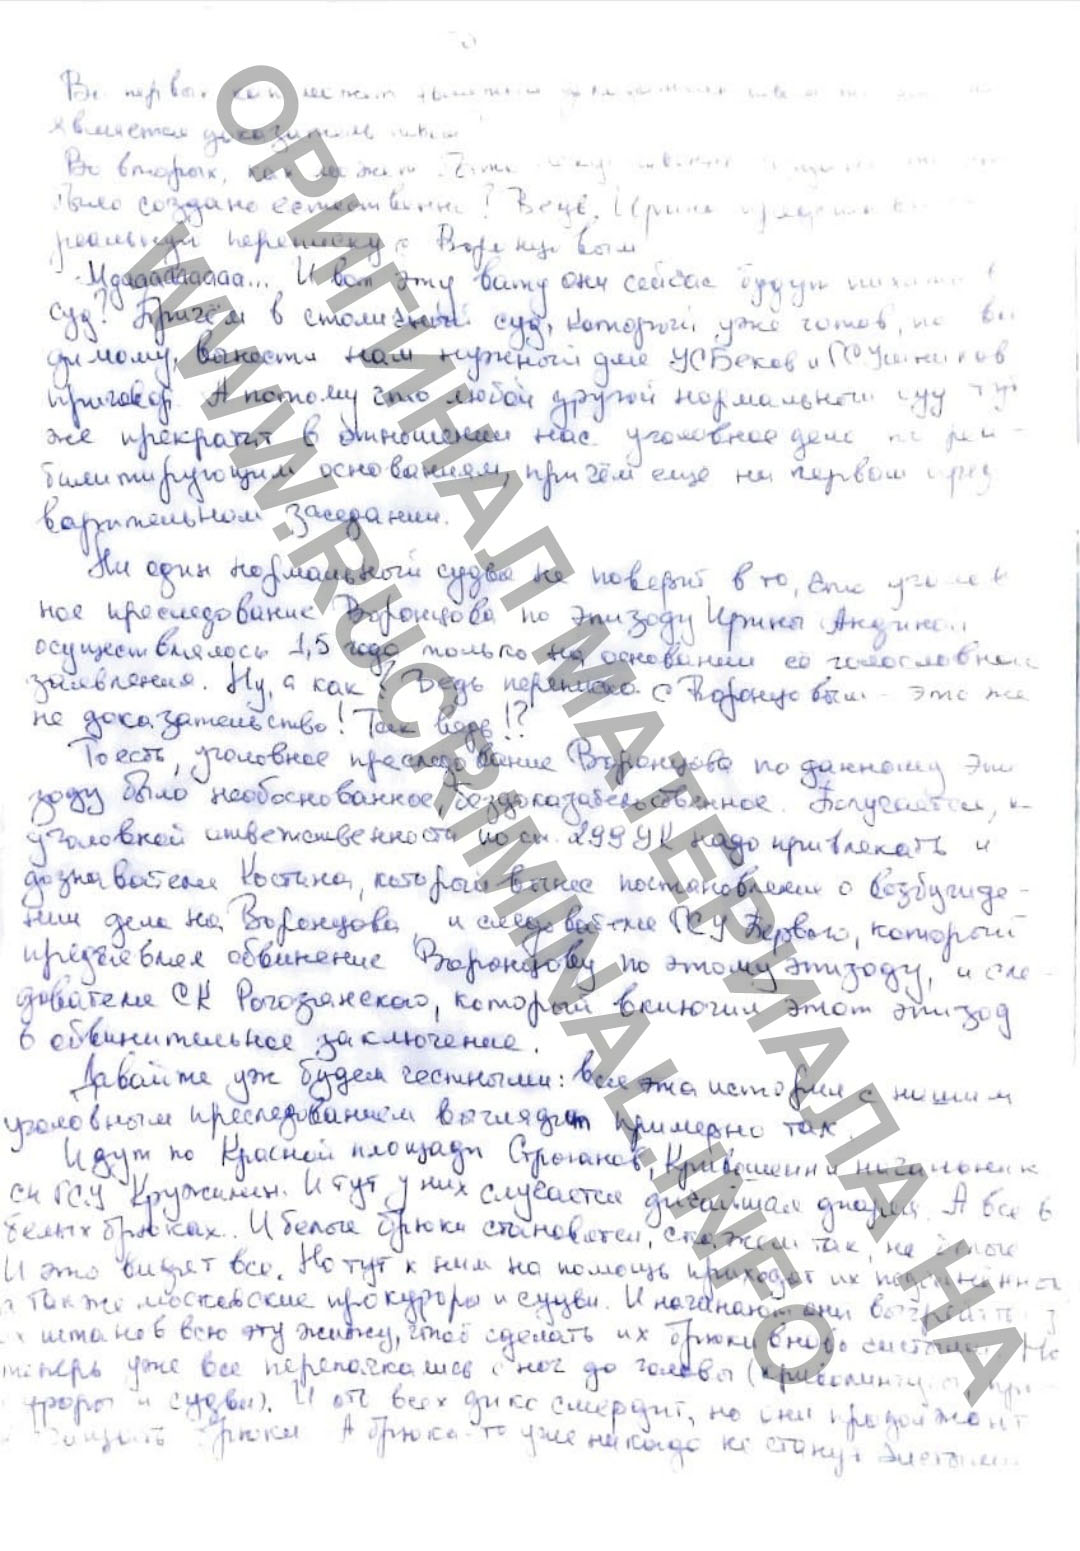 Во первых, как может
является доказательством
Во вторых, как может
было создано естественно? Ведь, Ирина
реальную переписку с Воронцовым
- Мдааааааааа... И вот эту вату они сейчас будут пихать в
суд? Причём в столичный суд, который уже готов, по ви
димому, вынести нам нужный для УСБеков и ГСУшников
приговор. А потому что любой другой нормальный суд тут
же прекратит в отношении нас уголовное дело по реа-
билитирующим основаниям, причём еще на первом пред
варительном заседании.
Ни один нормальный судья не поверит в то, что уголов
ное преследование Воронцова по эпизоду Ирины
осуществлялось 1,5 года только на основании её голословного
заявления. Ну, а как? Ведь переписка с Воронцовым - это же
не доказательство! Так ведь!?
То есть, уголовное преследование Воронцова по данному эпи
зоду было необоснованное, бездоказательственное. Получается, к
уголовной ответственности по ст. 299 УК надо привлекать и
дознавателя Костина, который вынес постановление о возбужде-
нии дела на Воронцова, и следователя ГСУ Первого, который
предъявлял обвинение Воронцову по этому эпизоду, и сле-
дователя СК Рогозянского, который включил этот эпизод
в обвинительное заключение.
Давайте уж будем честными: вся эта история с нашим
уголовным преследованием выглядит примерно так.
Идут по Красной площади Строганов, Кривошеин и начальник
СЧ ГСУ Кружилин. И тут у них случается дичайшая диарея. А все в
белых брюках. И белые брюки становятся, скажем так, не белые
И это видят все. Но тут к ним на помощь приходят их подчинённые
а также московские прокуроры и судьи. И начинают они выгребать из
их штанов всю эту жижу, чтоб сделать их брюки вновь чистыми. Но
теперь уже все перепачкались с ног до головы
и судьи). И от всех дико смердит, но они продолжают
брюки А брюки-то уже никогда не станут чистыми
ОРИГИНАЛ МАТЕРИАЛА НА
WWW.RUCRIMINAL.INFO